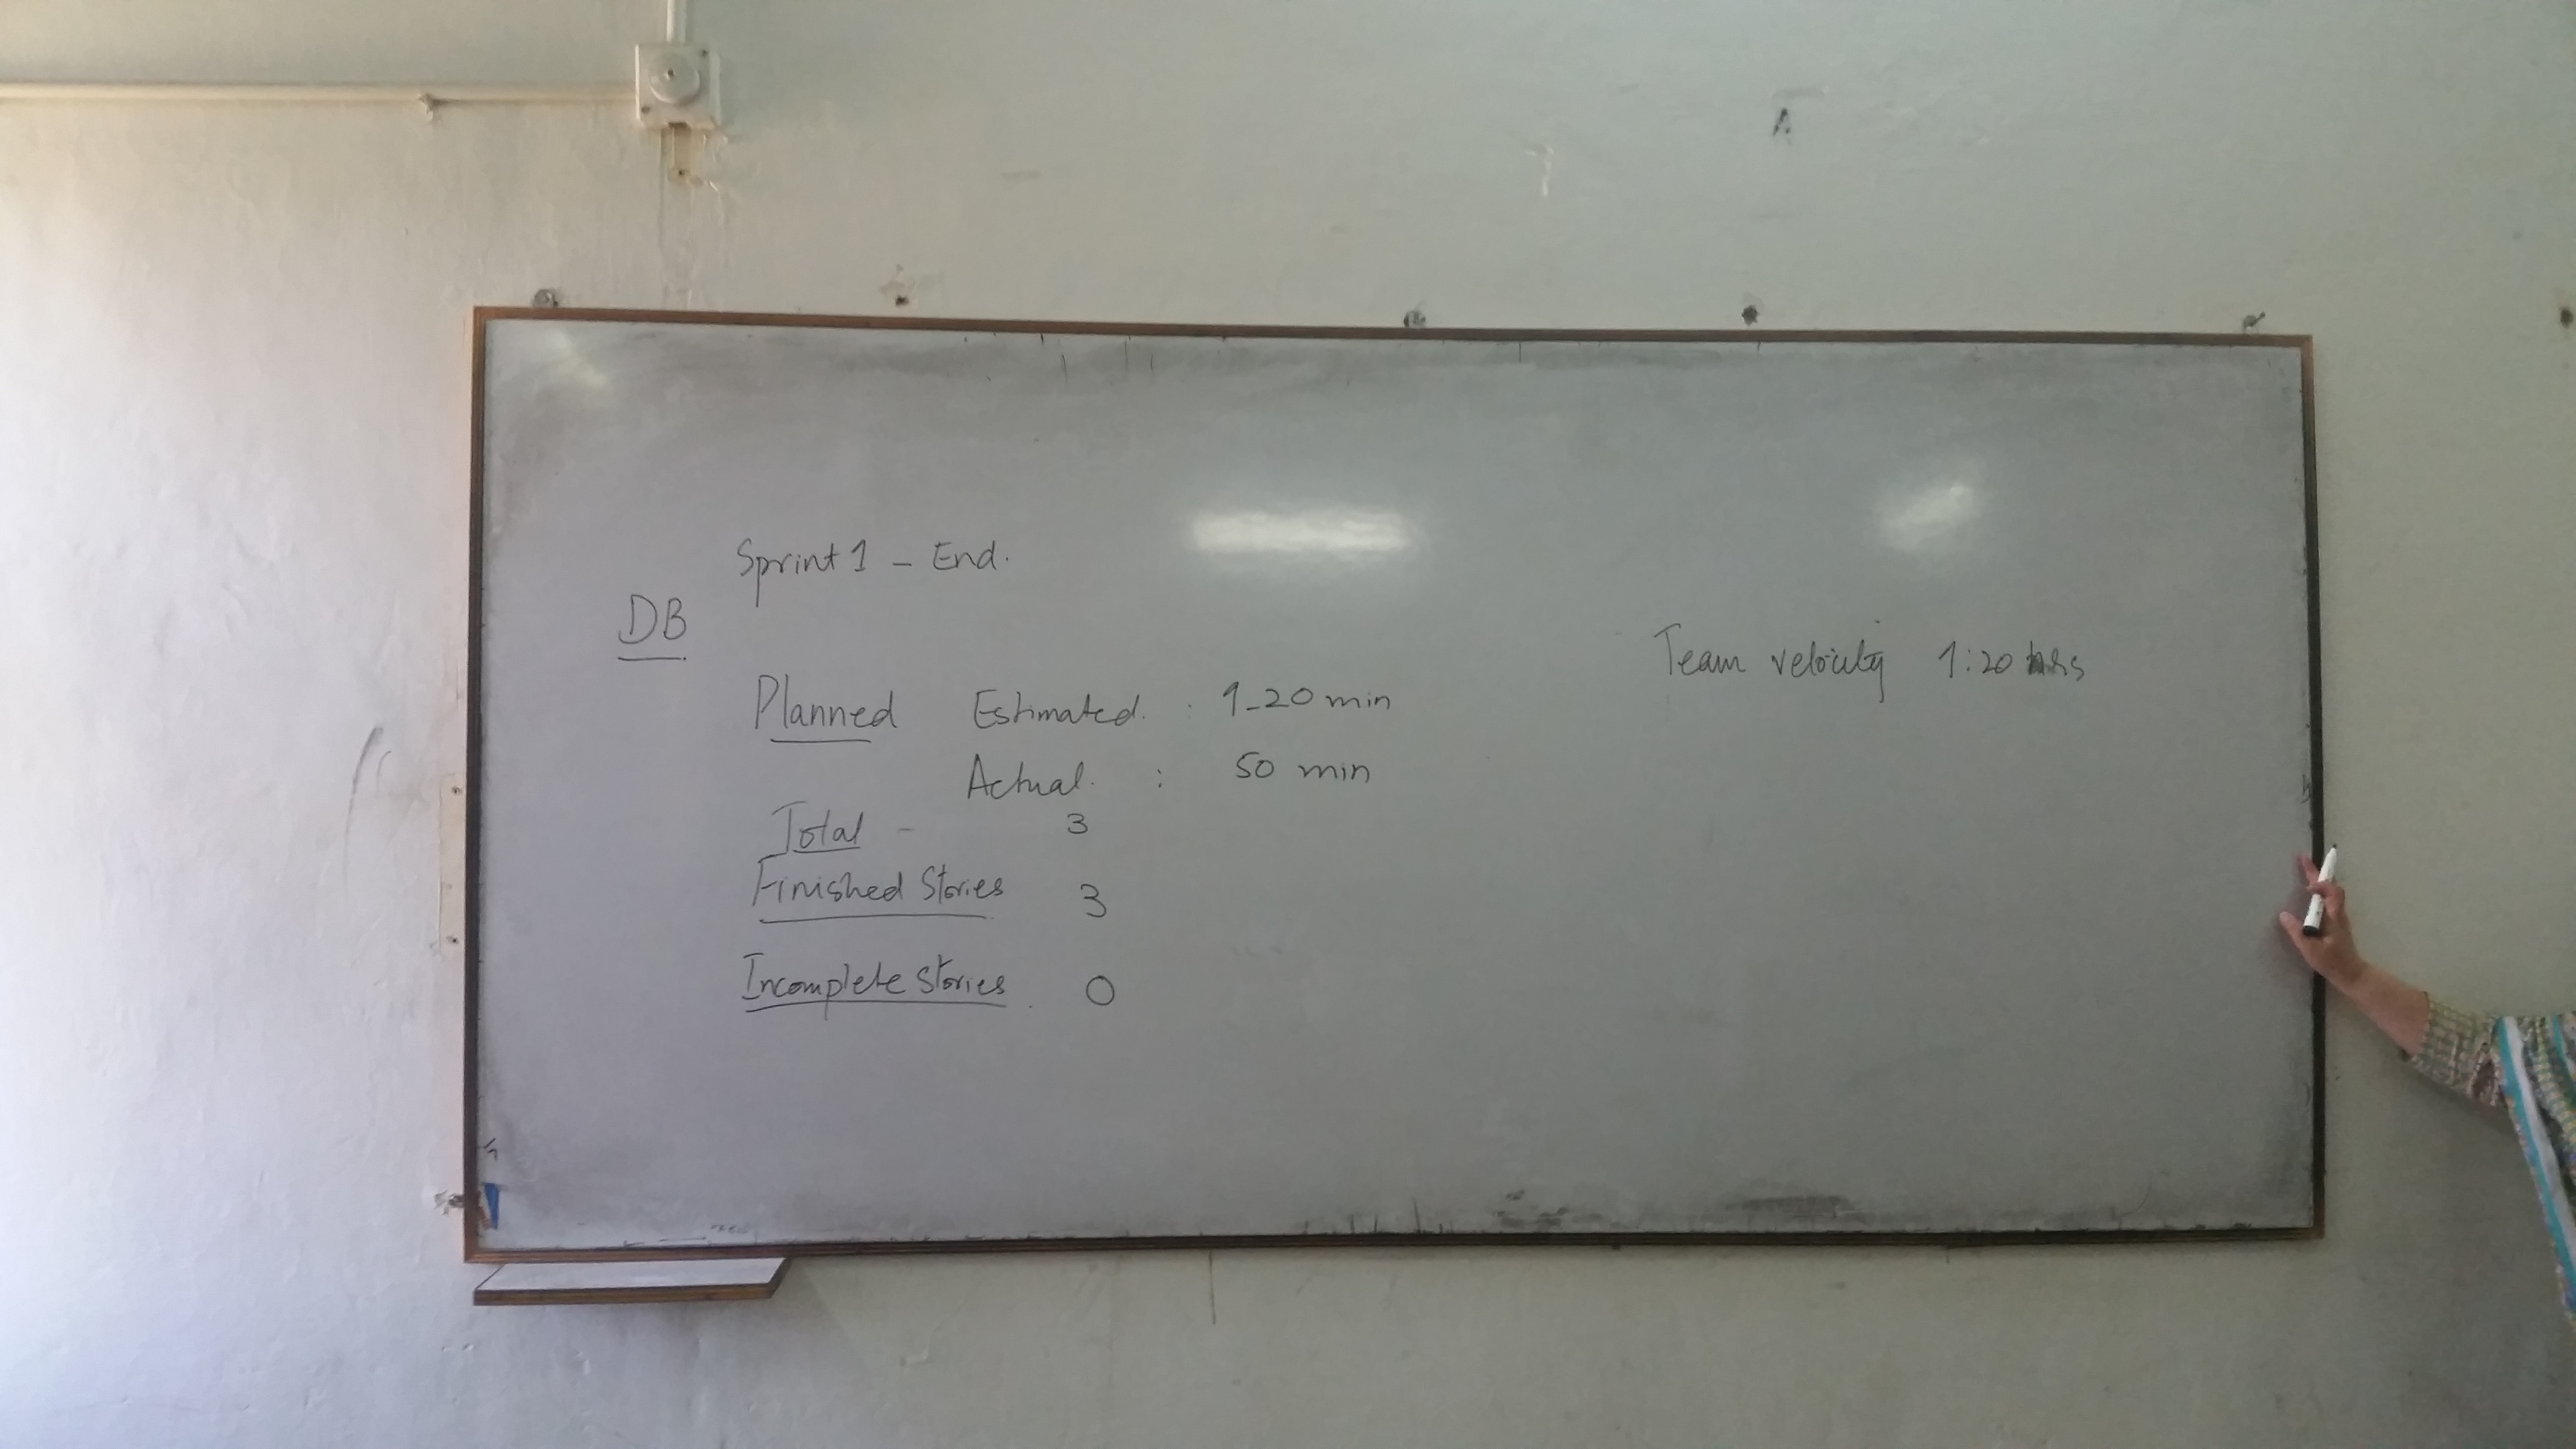 Sprint 1 - End.
DB
Planned Estimated : 1-20 min
Actual. : 50 min
Total - 3
Finished Stories 3
Incomplete Stories. 0
Team velocity 1:20 hrs